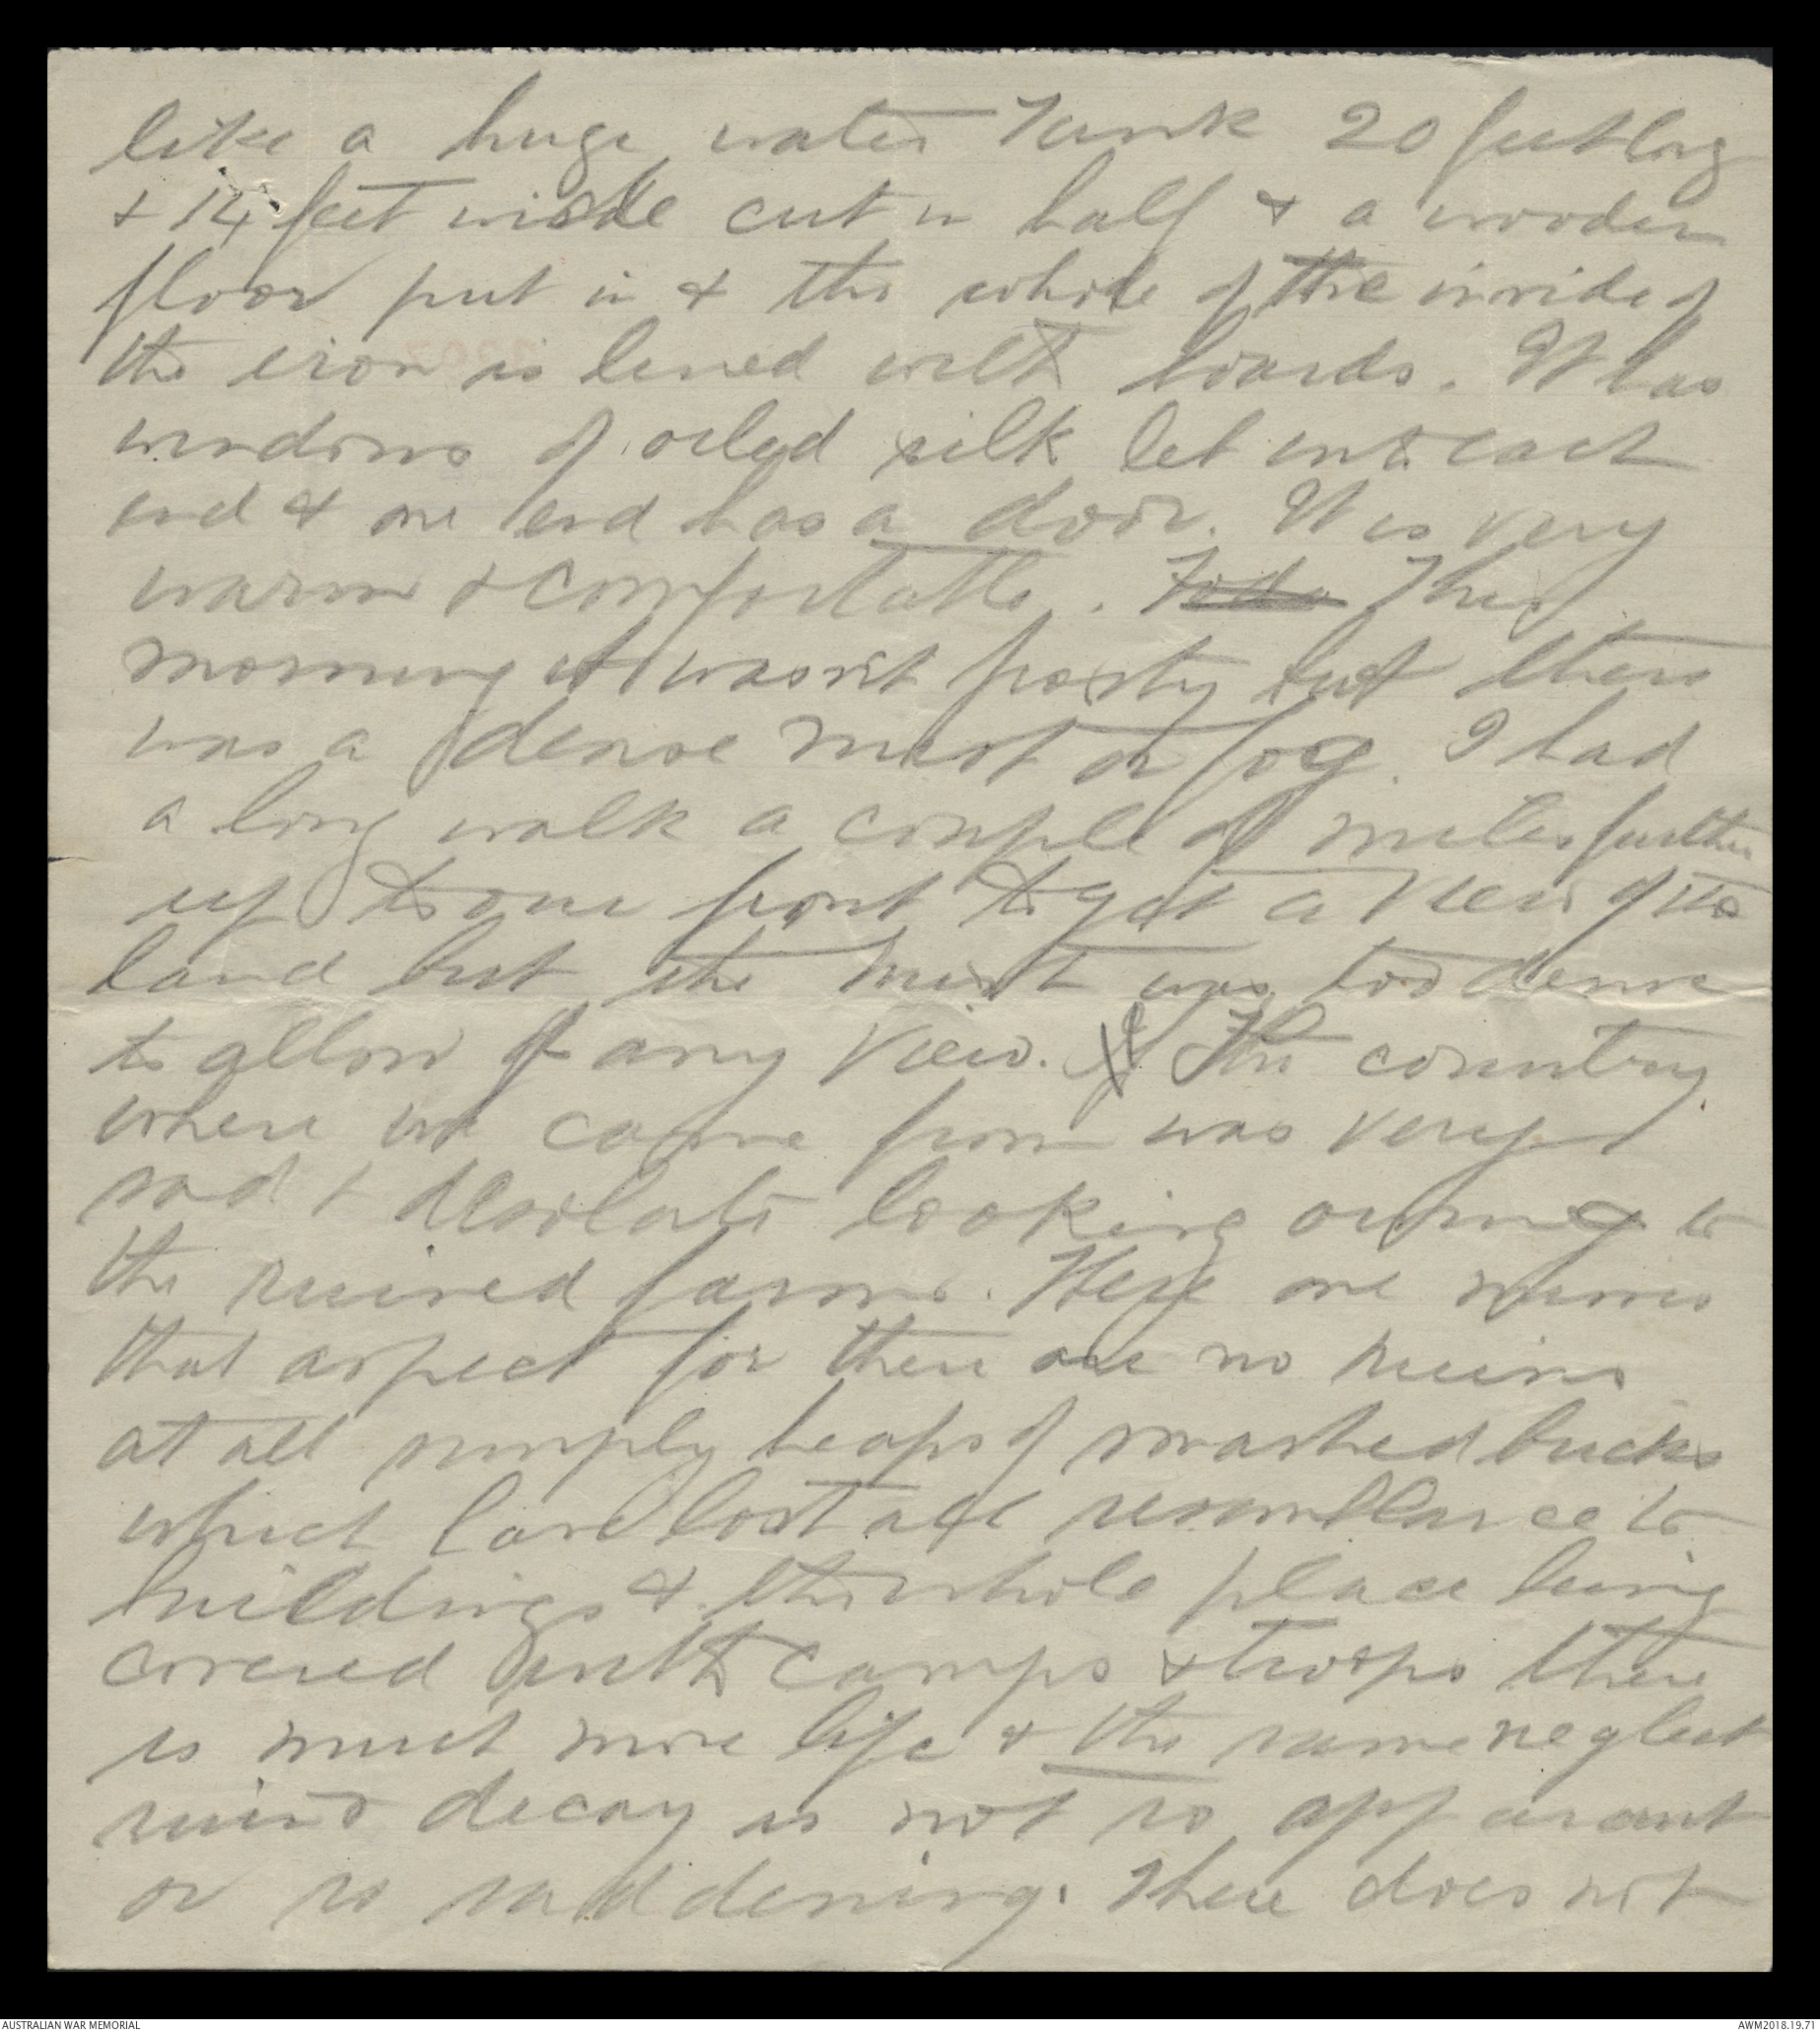 like a huge water Tank 20 feet long
& 14 feet wide cut in half & a wooden
floor put in & the whole of the inside of
the iron is lined with boards. It has
windows of oiled silk let in & each
end & one end has a door. It is very
warm & comfortable. Toda This
morning it wasn't frosty but there
was a dense mist or fog. I had
a long walk a couple of miles further
up to our front to get a view of the
land but the mist was too dense
to allow of any view. The country
where we came from was very
sad & desolate looking owing to
the ruined farms. Here one misses
that aspect for there are no ruins
at all simply heaps of smashed bricks
which have lost all resemblance to
buildings & the whole place being
covered with camps & troops there
is much more life & the same neglect
ruin & decay is not so apparant
or so saddening. There does not
AUSTRALIAN WAR MEMORIAL
AWM2018.19.71